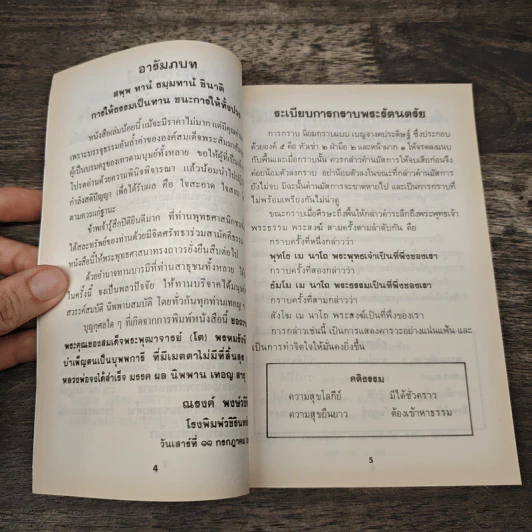 อารัมภบท
สพฺพ ทานํ ธมฺมทานํ ชินาติ
การให้ธรรมเป็นทาน ชนะการให้ทั้งปวง
หนังสือเล่มน้อยนี้ แม้จะมีราคาไม่มาก แต่มีคุณค่า
เพราะบรรจุธรรมอันล้ำค่าขององค์สมเด็จพระสัมมา
ผู้เป็นบรมครูของเทวดามนุษย์ทั้งหลาย ขอให้ผู้ที่
โปรดอ่านด้วยความพินิจพิจารณา แล้วน้อมนำไป
กำลังสติปัญญา เพื่อได้รับผล คือ ใจสะอาด ใจส
ตามควรแก่ฐานะ
ข้าพเจ้ารู้สึกปีติยินดีมาก ที่ท่านพุทธศาสนิกชน
ได้สละทรัพย์ของท่านด้วยมีจิตศรัทธาร่วมสามัคคีธรรม
หนังสือนี้ให้พระพุทธศาสนาทรงถาวรยั่งยืนสืบต่อไป
ด้วยอำนาจทานบารมีที่ท่านสาธุชนทั้งหลาย ได้
ในครั้งนี้ จงเป็นพลวปัจจัย ให้ทานบริจาคได้มนุษย์
สวรรค์สมบัติ นิพพานสมบัติ โดยทั่วกันทุกท่านเทอญ
บุญกุศลใด ๆ ที่เกิดจากการพิมพ์หนังสือนี้
พระคุณของสมเด็จพระพุฒาจารย์ (โต) พรหมรังสี
บำเพ็ญตนเป็นบุพพการี ที่มีเมตตาไม่มีที่สิ้นสุด
หลวงพ่อจงได้สำเร็จ มรรค ผล นิพพาน เทอญ สาธุ
ณรงค์ พงษ์
โรงพิมพ์
วันเสาร์ที่ ๑๑ กรกฎาคม
4
ระเบียบการกราบพระรัตนตรัย
การกราบ นิยมกราบแบบ เบญจางคประดิษฐ์ ซึ่งประกอบ
ด้วยองค์ ๕ คือ หัวเข่า ๒ ฝ่ามือ ๒ และหน้าผาก ๑ ให้จรดลงแนบ
กับพื้นและเมื่อกราบนั้น ควรกล่าวคำนมัสการให้จบเสียก่อนจึง
ค่อยน้อมตัวลงกราบ อย่าน้อมตัวลงในขณะที่กล่าวคำนมัสการ
ยังไม่จบ มิฉะนั้นคำนมัสการจะขาดหายไป และเป็นการกราบที่
ไม่พร้อมเพรียงกันไม่น่าดู
ขณะกราบเมื่อศีรษะถึงพื้นให้กล่าวคำระลึกถึงพระพุทธเจ้า
พระธรรม พระสงฆ์ สามครั้งตามลำดับกัน คือ
กราบครั้งที่หนึ่งกล่าวว่า
พุทโธ เม นาโถ พระพุทธเจ้าเป็นที่พึ่งของเรา
กราบครั้งที่สองกล่าวว่า
ธัมโม เม นาโถ พระธรรมเป็นที่พึ่งของเรา
กราบครั้งที่สามกล่าวว่า
สังโฆ เม นาโถ พระสงฆ์เป็นที่พึ่งของเรา
การกล่าวเช่นนี้ เป็นการแสดงคารวะอย่างแน่นแฟ้น และ
เป็นการทำจิตใจให้มั่นคงยิ่งขึ้น
คติธรรม
ความสุขโลกีย์ มีได้ชั่วคราว
ความสุขยืนยาว ต้องเข้าหาธรรม
5